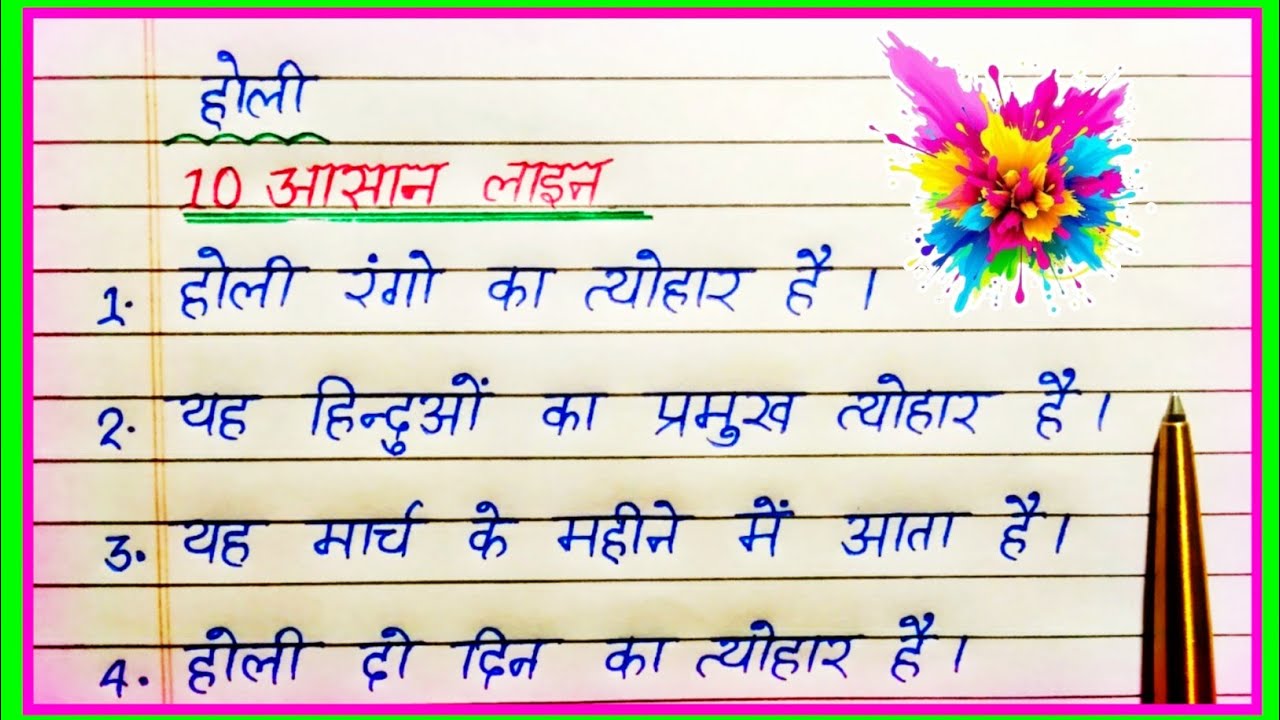 होली
10 आसान लाइन
1. होली रंगो का त्योहार है ।
2. यह हिन्दुओं का प्रमुख त्योहार है ।
3. यह मार्च के महीने में आता है ।
4. होली दो दिन का त्योहार है ।